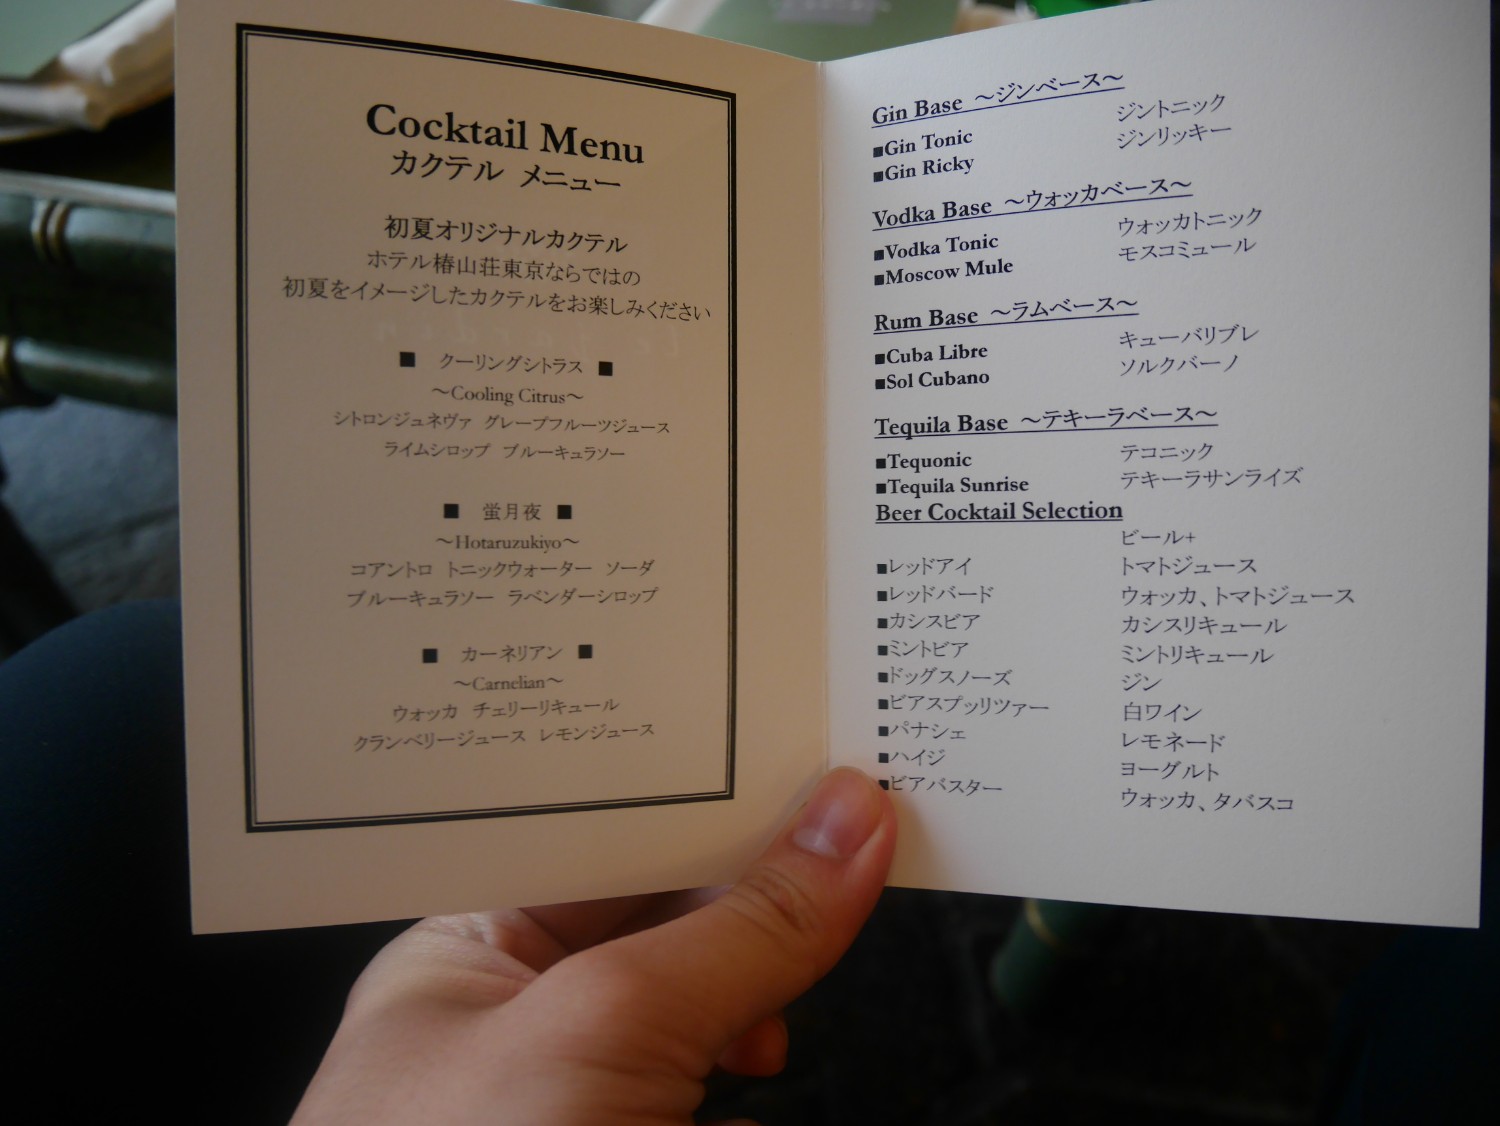 Cocktail Menu
カクテル メニュー
初夏オリジナルカクテル
ホテル椿山荘東京ならではの
初夏をイメージしたカクテルをお楽しみください
■ クーリングシトラス ■
～Cooling Citrus～
シトロンジュネヴァ グレープフルーツジュース
ライムシロップ ブルーキュラソー
■ 蛍月夜 ■
～Hotaruzukiyo～
コアントロ トニックウォーター ソーダ
ブルーキュラソー ラベンダーシロップ
■ カーネリアン ■
～Carnelian～
ウォッカ チェリーリキュール
クランベリージュース レモンジュース
Gin Base ～ジンベース～
■Gin Tonic ジントニック
■Gin Ricky ジンリッキー
Vodka Base ～ウォッカベース～
■Vodka Tonic ウォッカトニック
■Moscow Mule モスコミュール
Rum Base ～ラムベース～
■Cuba Libre キューバリブレ
■Sol Cubano ソルクバーノ
Tequila Base ～テキーラベース～
■Tequonic テコニック
■Tequila Sunrise テキーラサンライズ
Beer Cocktail Selection
ビール+
■レッドアイ トマトジュース
■レッドバード ウォッカ、トマトジュース
■カシスビア カシスリキュール
■ミントビア ミントリキュール
■ドッグスノーズ ジン
■ビアスプッリツァー 白ワイン
■パナシェ レモネード
■ハイジ ヨーグルト
■ビアバスター ウォッカ、タバスコ